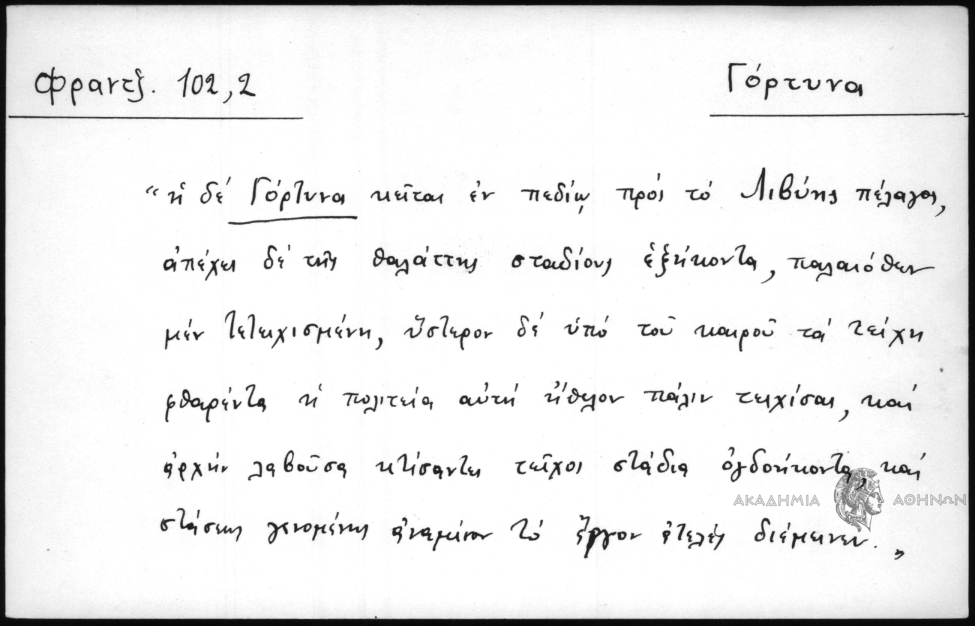 Φραντζ. 102,2
Γόρτυνα
“ἡ δέ Γόρτυνα κεῖται ἐν πεδίῳ πρός τό Λιβύης πέλαγος,
ἀπέχει δέ τῆς θαλάττης σταδίους ἑξήκοντα, παλαιόθεν
μέν τετειχισμένη, ὕστερον δέ ὑπό τοῦ καιροῦ τά τείχη
φθαρέντα ἡ πολιτεία αὐτή ἤθελον πάλιν τειχίσαι, καί
ἀρχήν λαβοῦσα κτίσαντες τεῖχος στάδια ὀγδοήκοντα, καί
στάσεως γενομένης ἀναμέσον τό ἔργον ἀτελές διέμεινεν.„
ΑΚΑΔΗΜΙΑ ΑΘΗΝΩΝ